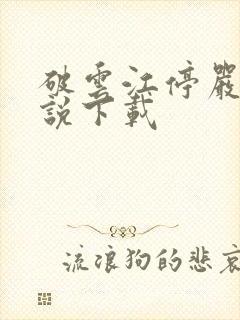 破雲江停嚴
說下載
流浪狗的悲哀